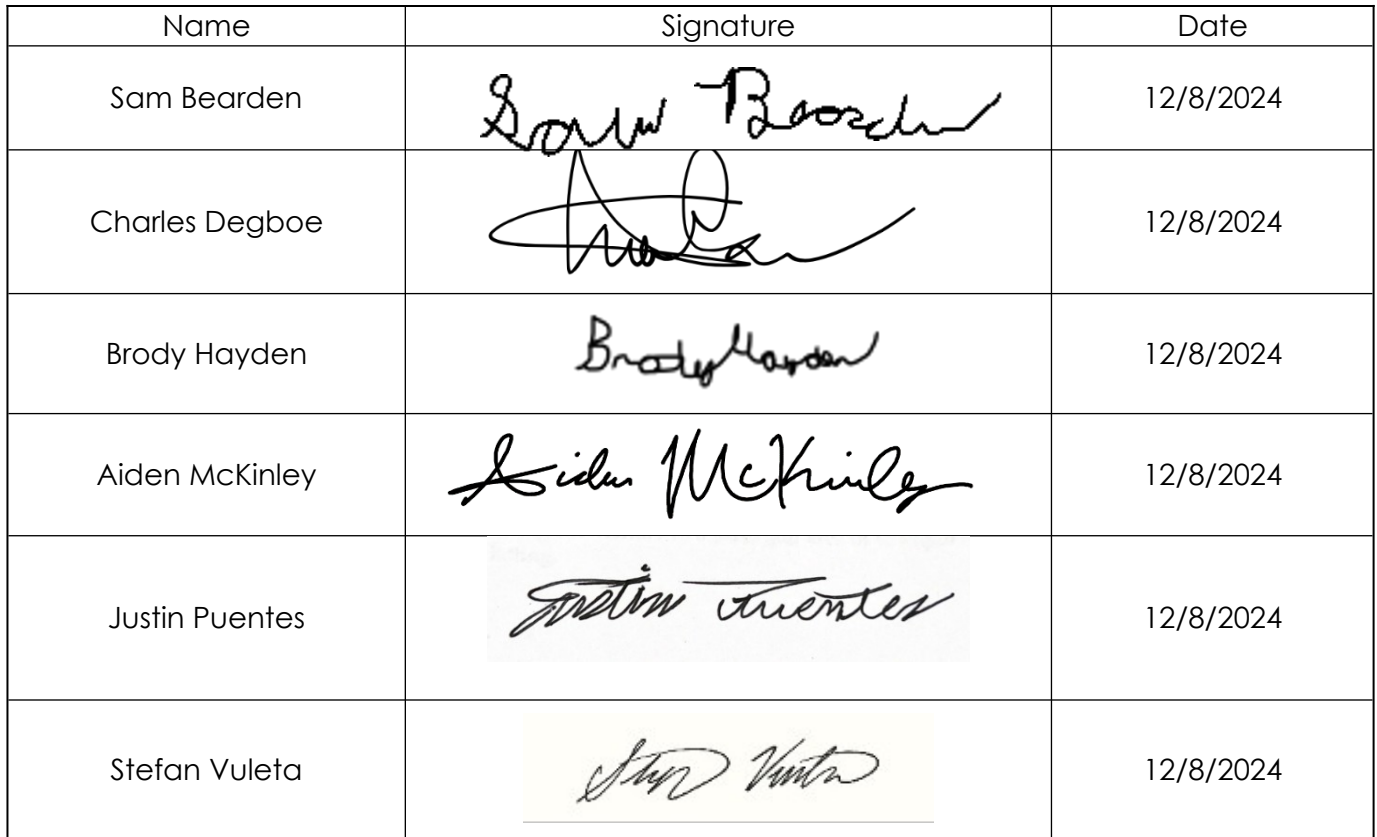 Name Signature Date
Sam Bearden Sam Bearden 12/8/2024
Charles Degboe 12/8/2024
Brody Hayden Brody Hayden 12/8/2024
Aiden McKinley Aiden McKinley 12/8/2024
Justin Puentes Justin Puentes 12/8/2024
Stefan Vuleta 12/8/2024